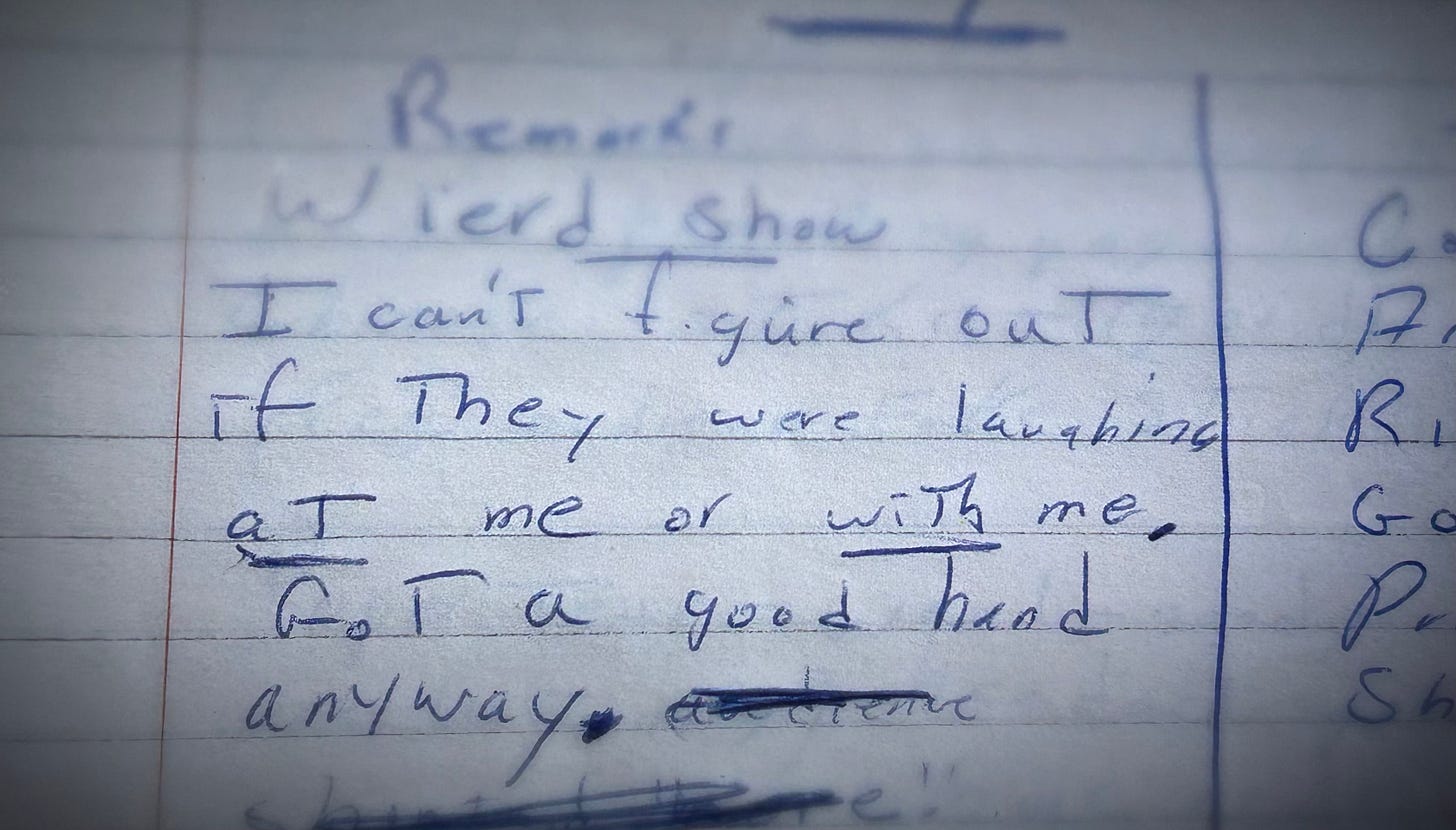 Remarks
Wierd show
I can't figure out
if They were laughing
aT me or wiTh me.
GoT a good hand
anyway. audience
C
A
R
Go
P
Sh